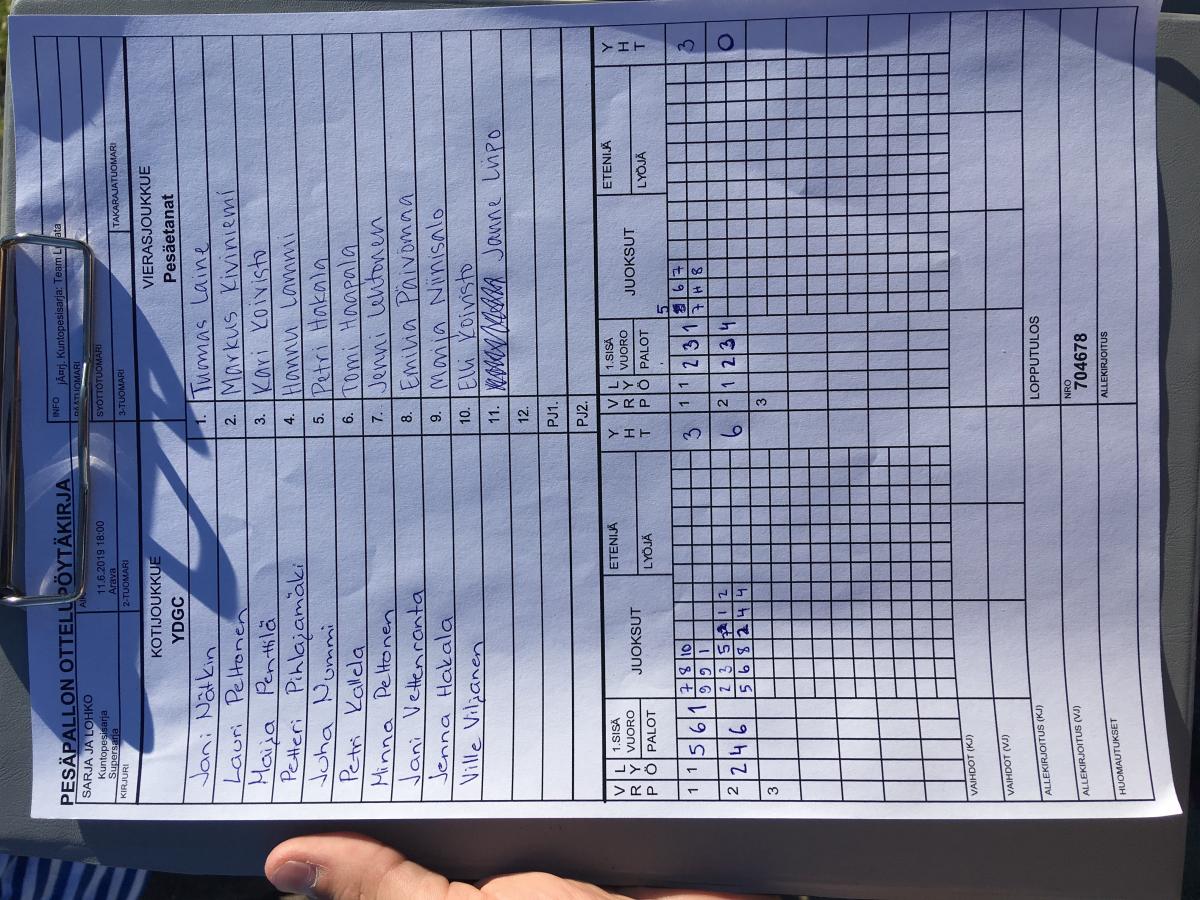 PESÄPALLON OTTELUPÖYTÄKIRJA
SARJA JA LOHKO
Kuntopesisarja
Supersarja
11.6.2019 18:00
Arava
INFO
Kuntopesisarja: Team
SYÖTTÖTUOMARI
KIRJURI
2-TUOMARI
3-TUOMARI
TAKARAJATUOMARI
KOTIJOUKKUE
YDGC
VIERASJOUKKUE
Pesäetanat
Jani Nätkin 1. Tuomas Laine
Lauri Peltonen 2. Markus Kiviniemi
Maija Penttilä 3. Kari Koivisto
Petteri Pihlajamäki 4. Hannu Lammi
Juha Nummi 5. Petri Hakala
Petri Kallela 6. Tomi Haapala
Minna Peltonen 7. Jenni Lehtonen
Jani Vettenranta 8. Emilia Päivömaa
Jenna Hakala 9. Monja Niinisalo
Ville Viljanen 10. Elli Koivisto
11. Janne Liipo
12.
PJ1.
PJ2.
VRP LYÖ 1.SISÄ VUORO PALOT JUOKSUT ETENIJÄ LYÖJÄ YHT VRP LYÖ 1.SISÄ VUORO PALOT JUOKSUT ETENIJÄ LYÖJÄ YHT
5
1 1 5 6 1 7 8 10 3 1 1 2 3 1 6 7 3
9 9 1 7 H 8
2 2 4 6 2 3 5 1 2 6 2 1 2 3 4 0
5 6 8 4 4
3 3
VAIHDOT (KJ)
VAIHDOT (VJ)
ALLEKIRJOITUS (KJ)
LOPPUTULOS
ALLEKIRJOITUS (VJ)
NRO
704678
HUOMAUTUKSET
ALLEKIRJOITUS